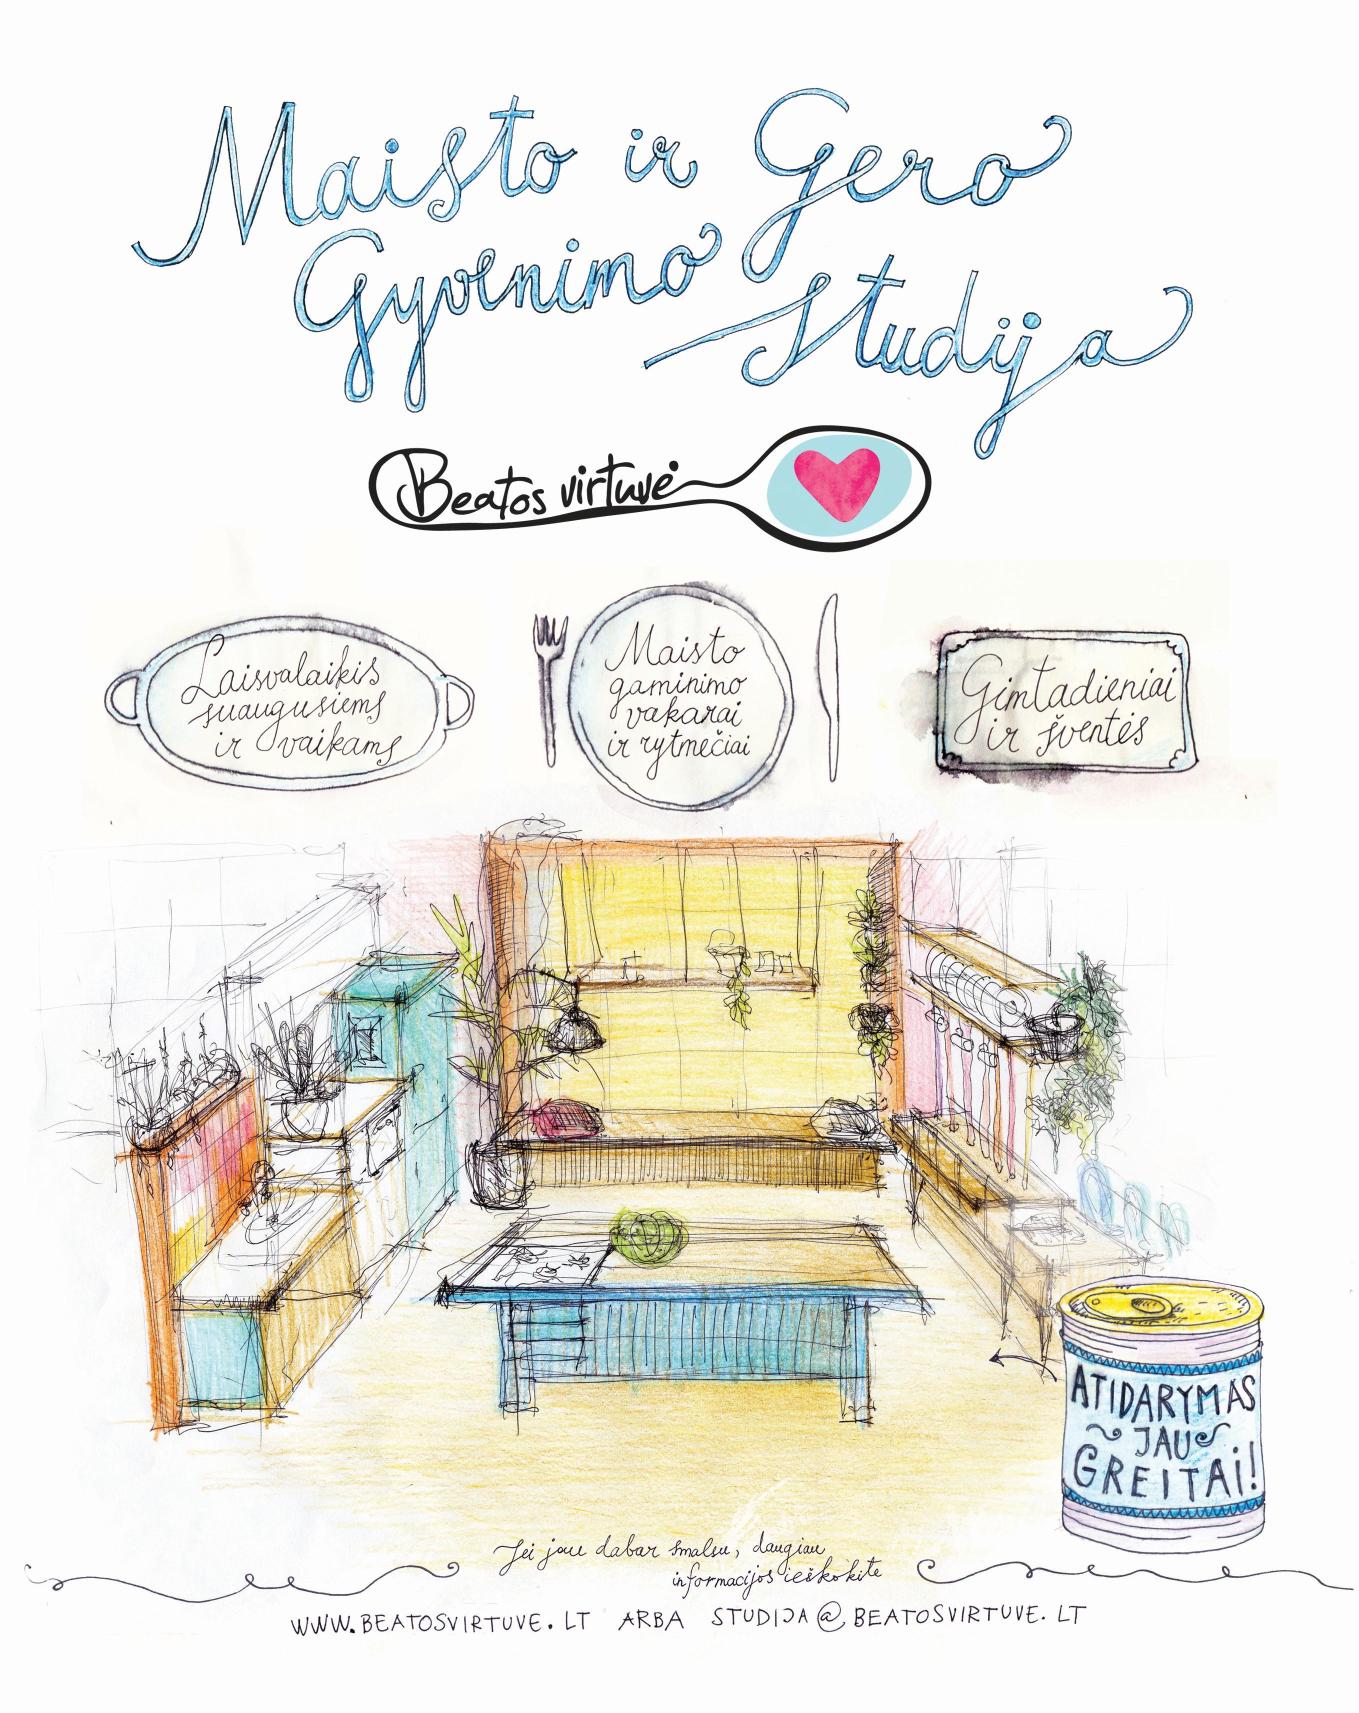 Maisto ir Gero
Gyvenimo
Studija
Beatos virtuvė
Laisvalaikis
suaugusiems
ir vaikams
Maisto
gaminimo
vakarai
ir rytmečiai
Gimtadieniai
ir šventės
ATIDARYMAS
JAU
GREITAI!
Jei jau dabar smalsu, daugiau
informacijos ieškokite
WWW.BEATOSVIRTUVE.LT ARBA STUDIJA@BEATOSVIRTUVE.LT